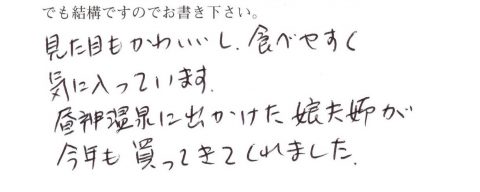 でも結構ですのでお書き下さい。
見た目もかわいいし、食べやすく
気に入っています。
昼神温泉に出かけた娘夫婦が
今年も買ってきてくれました。